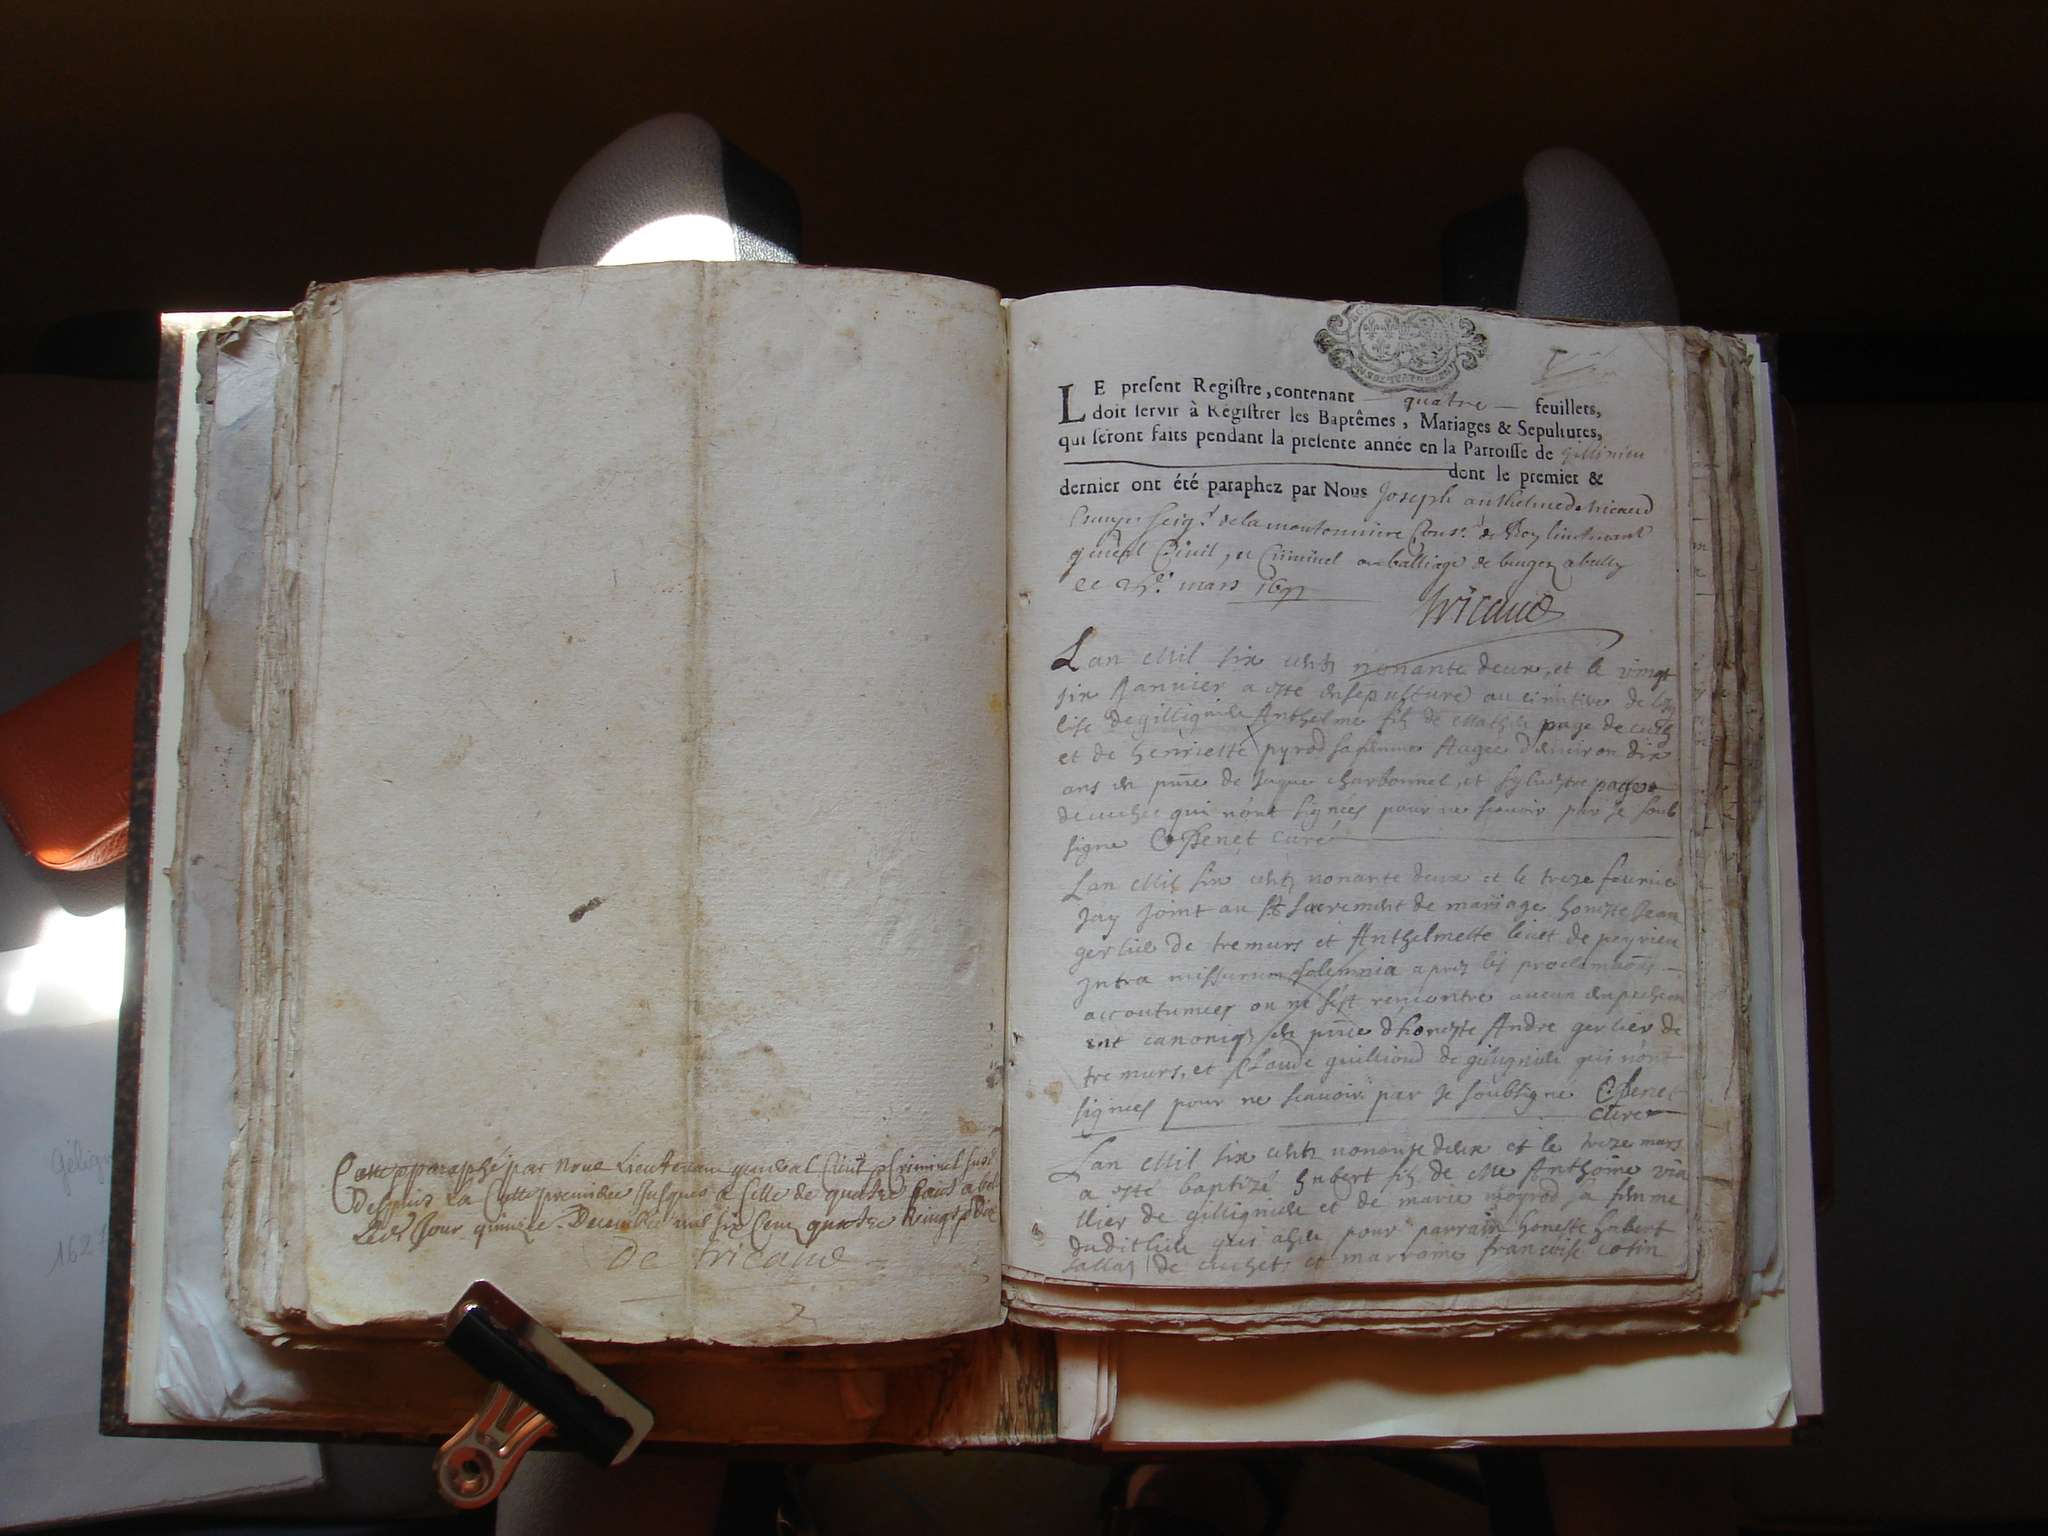 Cotte pparaphé par nous Lieutenant general Civil & Criminel susd
Despuis La Cotte premiere Jusques a Celle de quatre faict a bel
Ley Ce Jour quinzie. Decembre mil six Cent quatre Vingt & Dix
De Tricaud
2
LE present Registre, contenant quatre feuillets,
doit servir à Régistrer les Baptêmes, Mariages & Sepultures,
qui seront faits pendant la presente année en la Parroisse de gillinieu
dont le premier &
dernier ont été paraphez par Nous Joseph anthelme de tricaud
Escuyer seigr. de la moutonniere Consr. du Roy lieutenant
general Civil, et Criminel au balliage de bugey a belly
ce mars 169
tricaud
Lan Mil six cents nonante deux, et le vingt
six Jannier a esté ensepulturé au cimitiere de leg
lise de gillignieu Anthelme fils de Mathieu page de cuch
et de henriette pyrod sa femme Aagee d'environ dix
ans en pnce de Jaque charbonnel, et sylvestre page
de cuchet qui nont signées pour ne scavoir par je soub
signe C Penet curé
Lan Mil six cents nonante deux et le treze fevrier
Jay joint au St sacrement de mariage honeste Jean
gerlier de tremurs et Anthelmette levet de peyrieu
Intra missarum solemnia apres les proclamaons
accoutumees ou ne sest rencontre aucun enpechem
ent canoniq en pnce d'honeste Andre gerlier de
tremurs, et Claude guilliond de gillignieu qui nont
signées pour ne scavoir par je soubsigne C Penet
curé
Lan Mil six cents nonante deux et le treze mars
a esté baptizé hubert fils de Me Anthoine via
llier de gillignieu et de marie moyrod sa femme
dudit lieu qui a heu pour parrain honeste hubert
sallaz de cuchet et marrame francoise cotin
Gélign
162